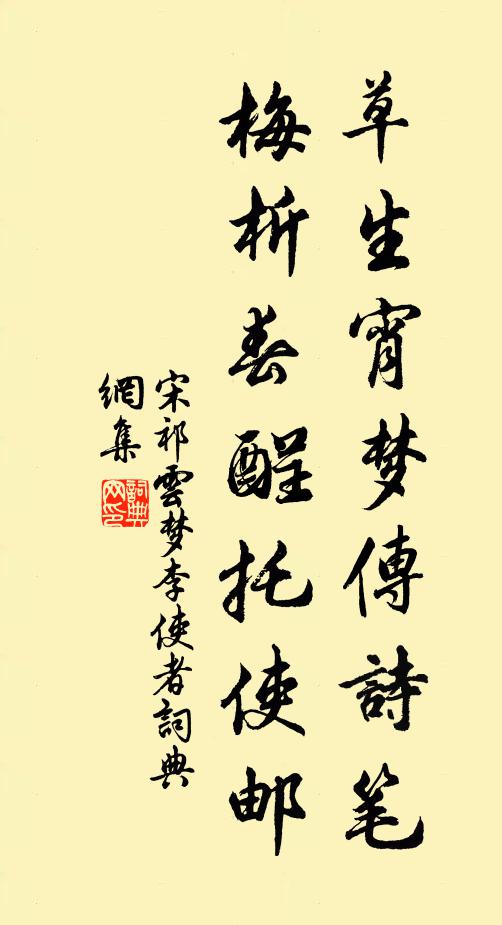 草生宵梦傳詩笔
梅析春酲托使邮
宋祁雲梦李使者詞典
網集
詞典
网印